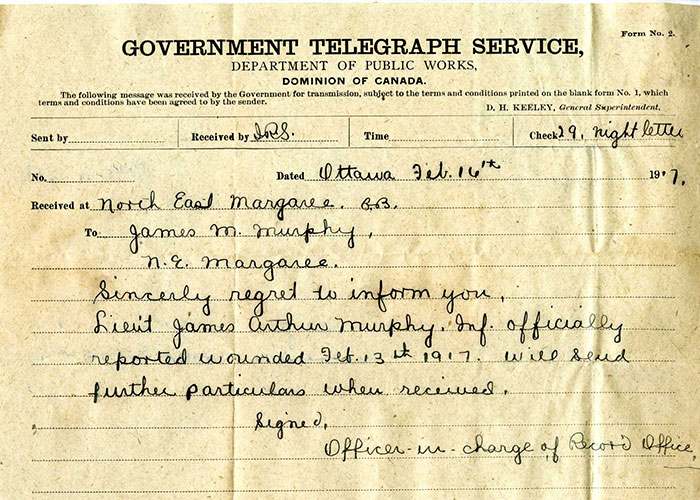 Form No. 2.
GOVERNMENT TELEGRAPH SERVICE,
DEPARTMENT OF PUBLIC WORKS,
DOMINION OF CANADA.
The following message was received by the Government for transmission, subject to the terms and conditions printed on the blank form No. 1, which
terms and conditions have been agreed to by the sender.
D. H. KEELEY, General Superintendent.
Sent by Received by Time Check 29, night letter
No. Dated Ottawa Feb. 16th 1917.
Received at North East Margaree.
To James M. Murphy,
N.E. Margaree.
Sincerly regret to inform you,
Lieut James Arthur Murphy. Inf. officially
reported wounded Feb. 13th 1917. Will send
further particulars when received.
Signed,
Officer-in-charge of Record Office,